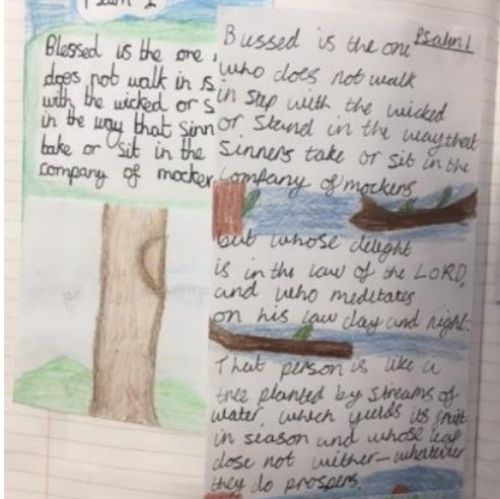 Psalm 1
Blessed is the one
does not walk in s
with the wicked or s
in the way that sinn
take or sit in the
company of mocker
Psalm 1
Bussed is the one
who does not walk
in step with the wicked
or stand in the way that
sinners take or sit in the
company of mockers
but whose delight
is in the law of the LORD,
and who meditates
on his law day and night.
That person is like a
tree planted by streams of
water, which yields its fruit
in season and whose leaf
dose not wither - whatever
they do prospers.